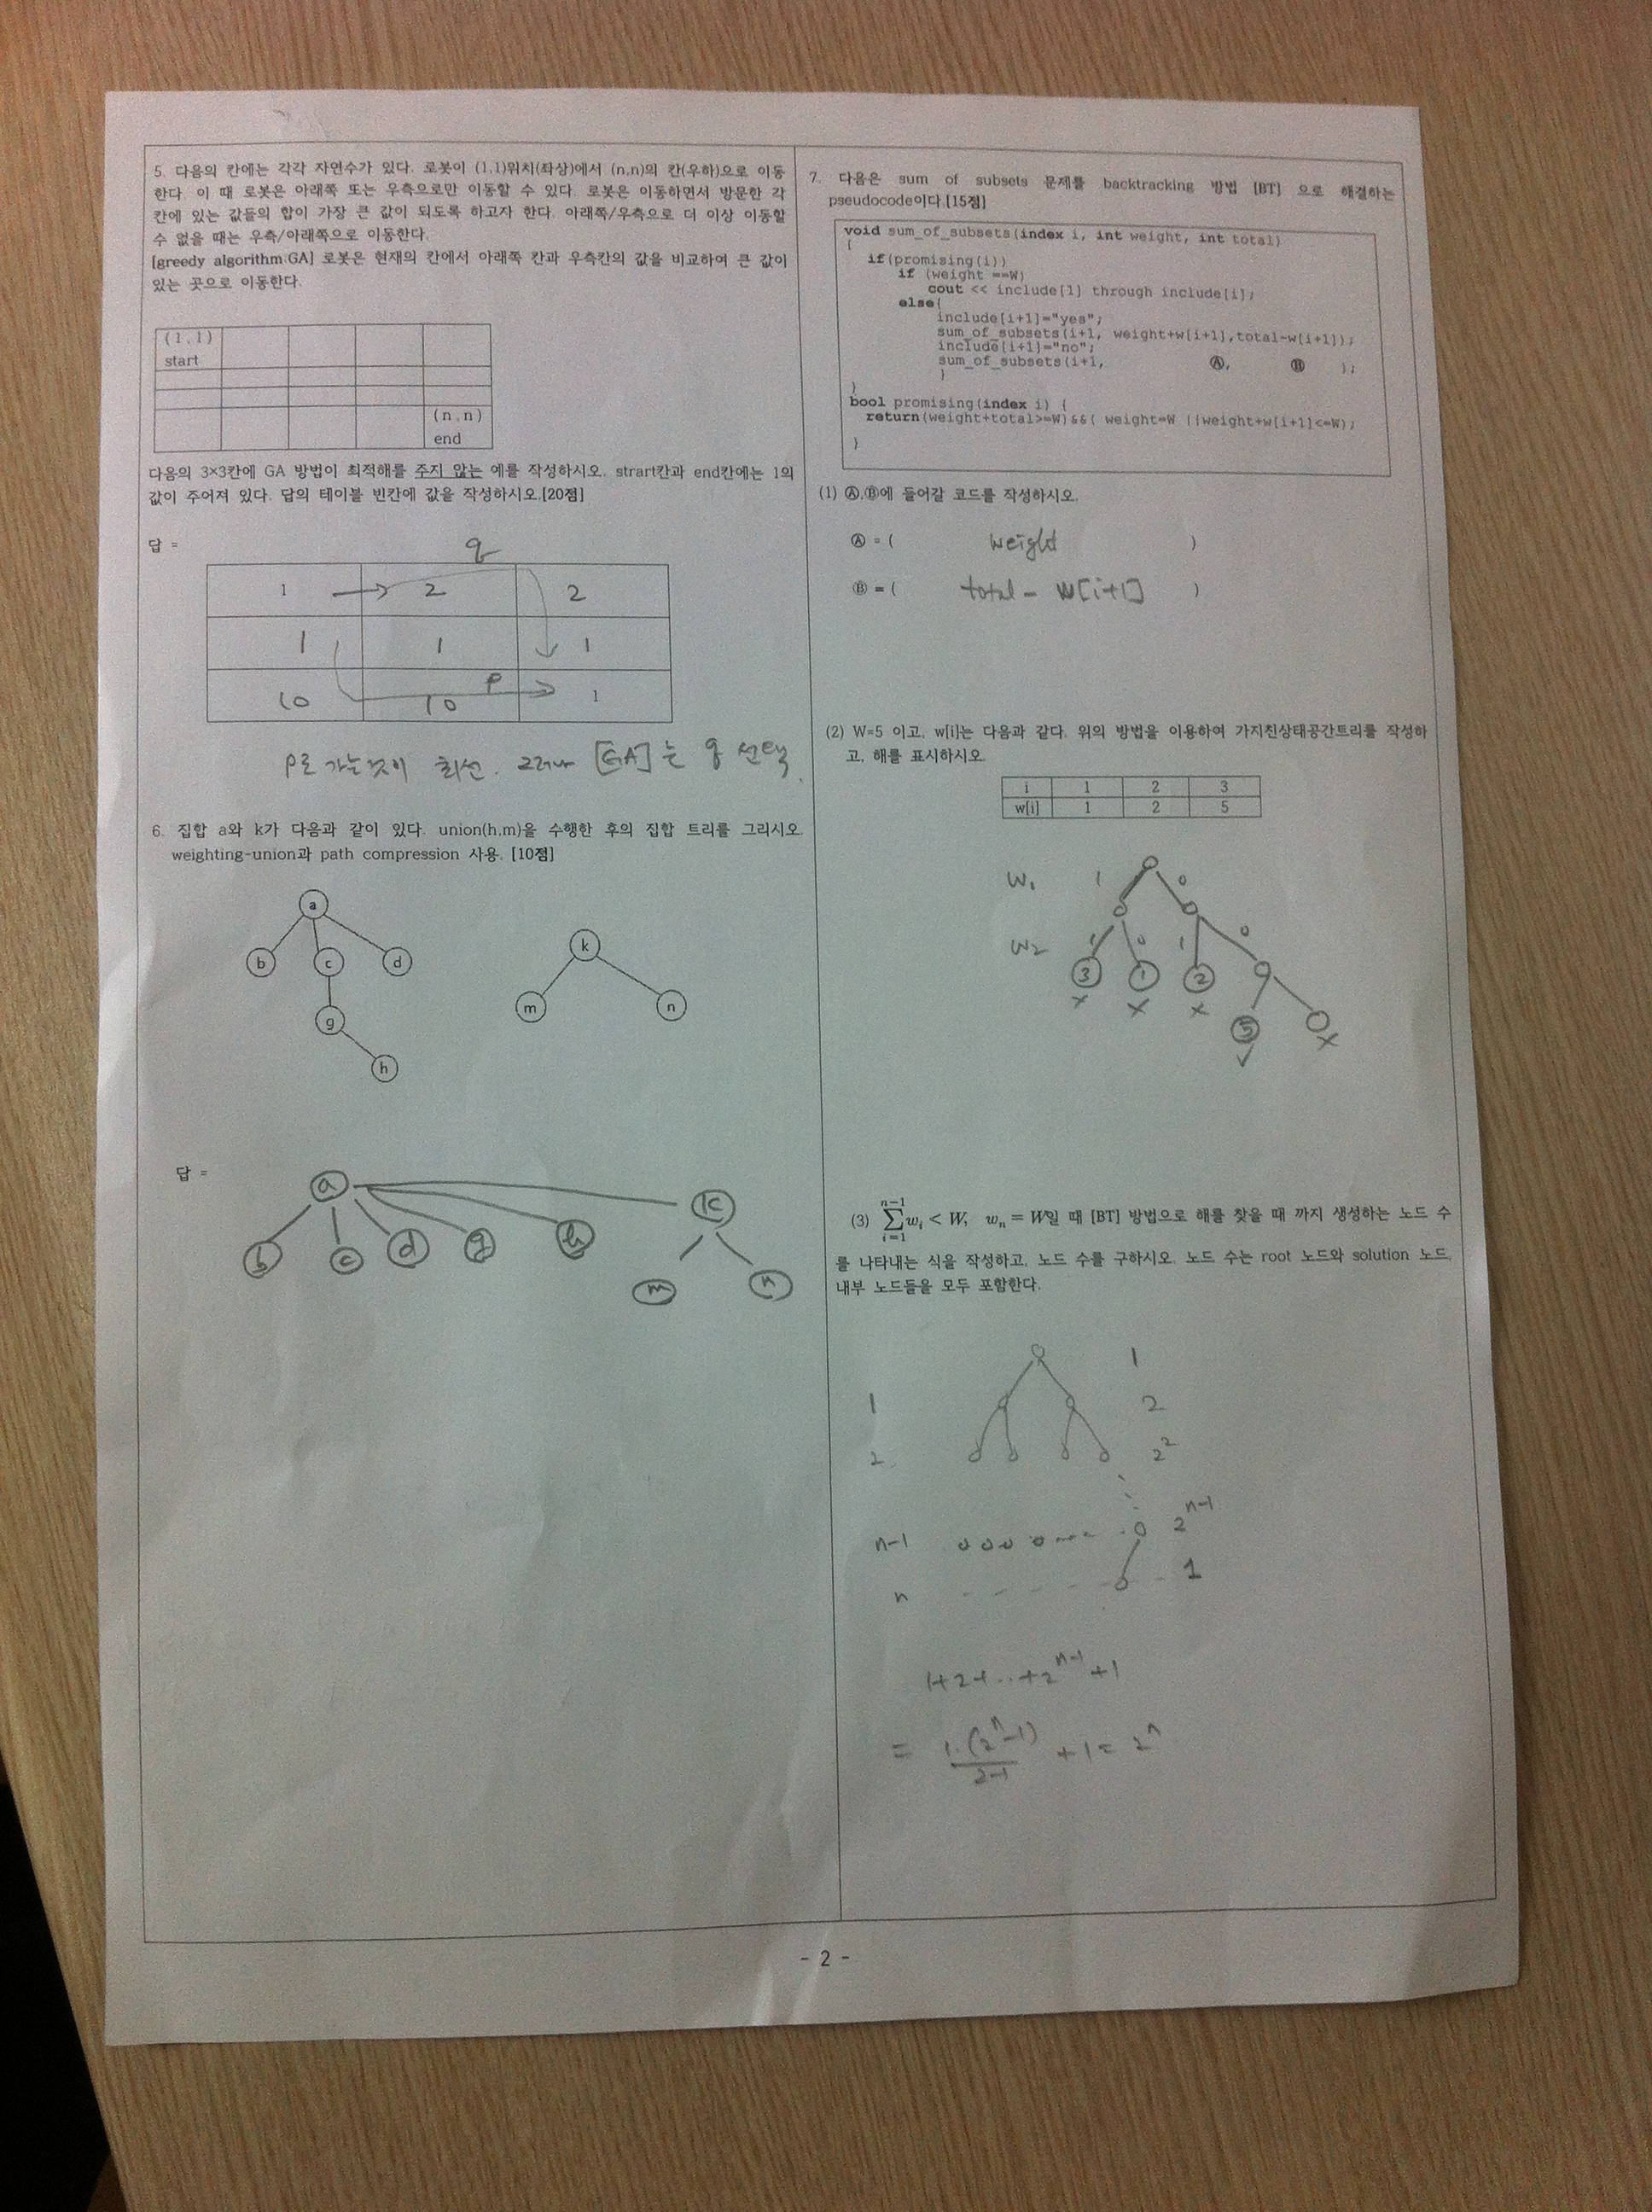 5. 다음의 칸에는 각각 자연수가 있다. 로봇이 (1,1)위치(좌상)에서 (n,n)의 칸(우하)으로 이동
한다. 이 때 로봇은 아래쪽 또는 우측으로만 이동할 수 있다. 로봇은 이동하면서 방문한 각
칸에 있는 값들의 합이 가장 큰 값이 되도록 하고자 한다. 아래쪽/우측으로 더 이상 이동할
수 없을 때는 우측/아래쪽으로 이동한다.
[greedy algorithm:GA] 로봇은 현재의 칸에서 아래쪽 칸과 우측칸의 값을 비교하여 큰 값이
있는 곳으로 이동한다.
(1,1)
start
(n,n)
end
다음의 3×3칸에 GA 방법이 최적해를 주지 않는 예를 작성하시오. strart칸과 end칸에는 1의
값이 주어져 있다. 답의 테이블 빈칸에 값을 작성하시오.[20점]
답 =
q
1 2 2
1 1 1
p
10 10 1
p로 가는것이 최선. 그러나 [GA]는 q 선택.
6. 집합 a와 k가 다음과 같이 있다. union(h,m)을 수행한 후의 집합 트리를 그리시오.
weighting-union과 path compression 사용. [10점]
a
k
b c d
m n
g
h
답 =
a k
b c d g h
m n
7. 다음은 sum of subsets 문제를 backtracking 방법 [BT] 으로 해결하는
pseudocode이다.[15점]
void sum_of_subsets(index i, int weight, int total)
{
if(promising(i))
if (weight ==W)
cout << include[1] through include[i];
else{
include[i+1]="yes";
sum_of_subsets(i+1, weight+w[i+1],total-w[i+1]);
include[i+1]="no";
sum_of_subsets(i+1, Ⓐ, Ⓑ );
}
}
bool promising(index i) {
return(weight+total>=W)&&( weight=W ||weight+w[i+1]<=W);
}
(1) Ⓐ,Ⓑ에 들어갈 코드를 작성하시오.
Ⓐ = ( weight )
Ⓑ = ( total - w[i+1] )
(2) W=5 이고, w[i]는 다음과 같다. 위의 방법을 이용하여 가지친상태공간트리를 작성하
고, 해를 표시하시오.
i 1 2 3
w[i] 1 2 5
W1 1 0
W2 1 0 1 0
3 1 2
x x x
5
✓ x
(3) \sum_{i=1}^{n-1} w_i < W, w_n = W일 때 [BT] 방법으로 해를 찾을 때 까지 생성하는 노드 수
를 나타내는 식을 작성하고, 노드 수를 구하시오. 노드 수는 root 노드와 solution 노드,
내부 노드들을 모두 포함한다.
1
1 2
2 2^2
n-1 2^{n-1}
n 1
1+2+...+2^{n-1}+1
= \frac{1·(2^n-1)}{2-1} +1= 2^n
- 2 -